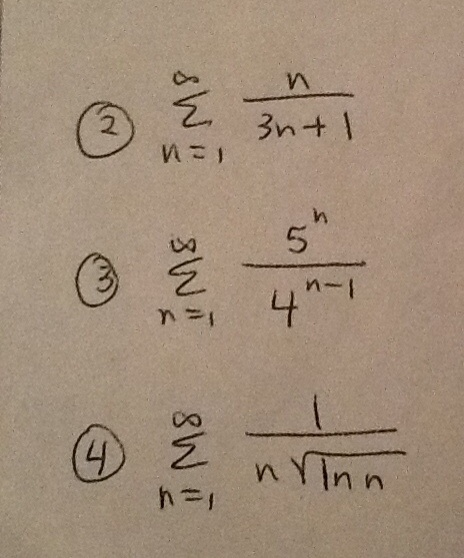 ② ∞ ∑ n=1 n/(3n+1)
③ ∞ ∑ n=1 5^n/4^(n-1)
④ ∞ ∑ n=1 1/(n√(ln n))